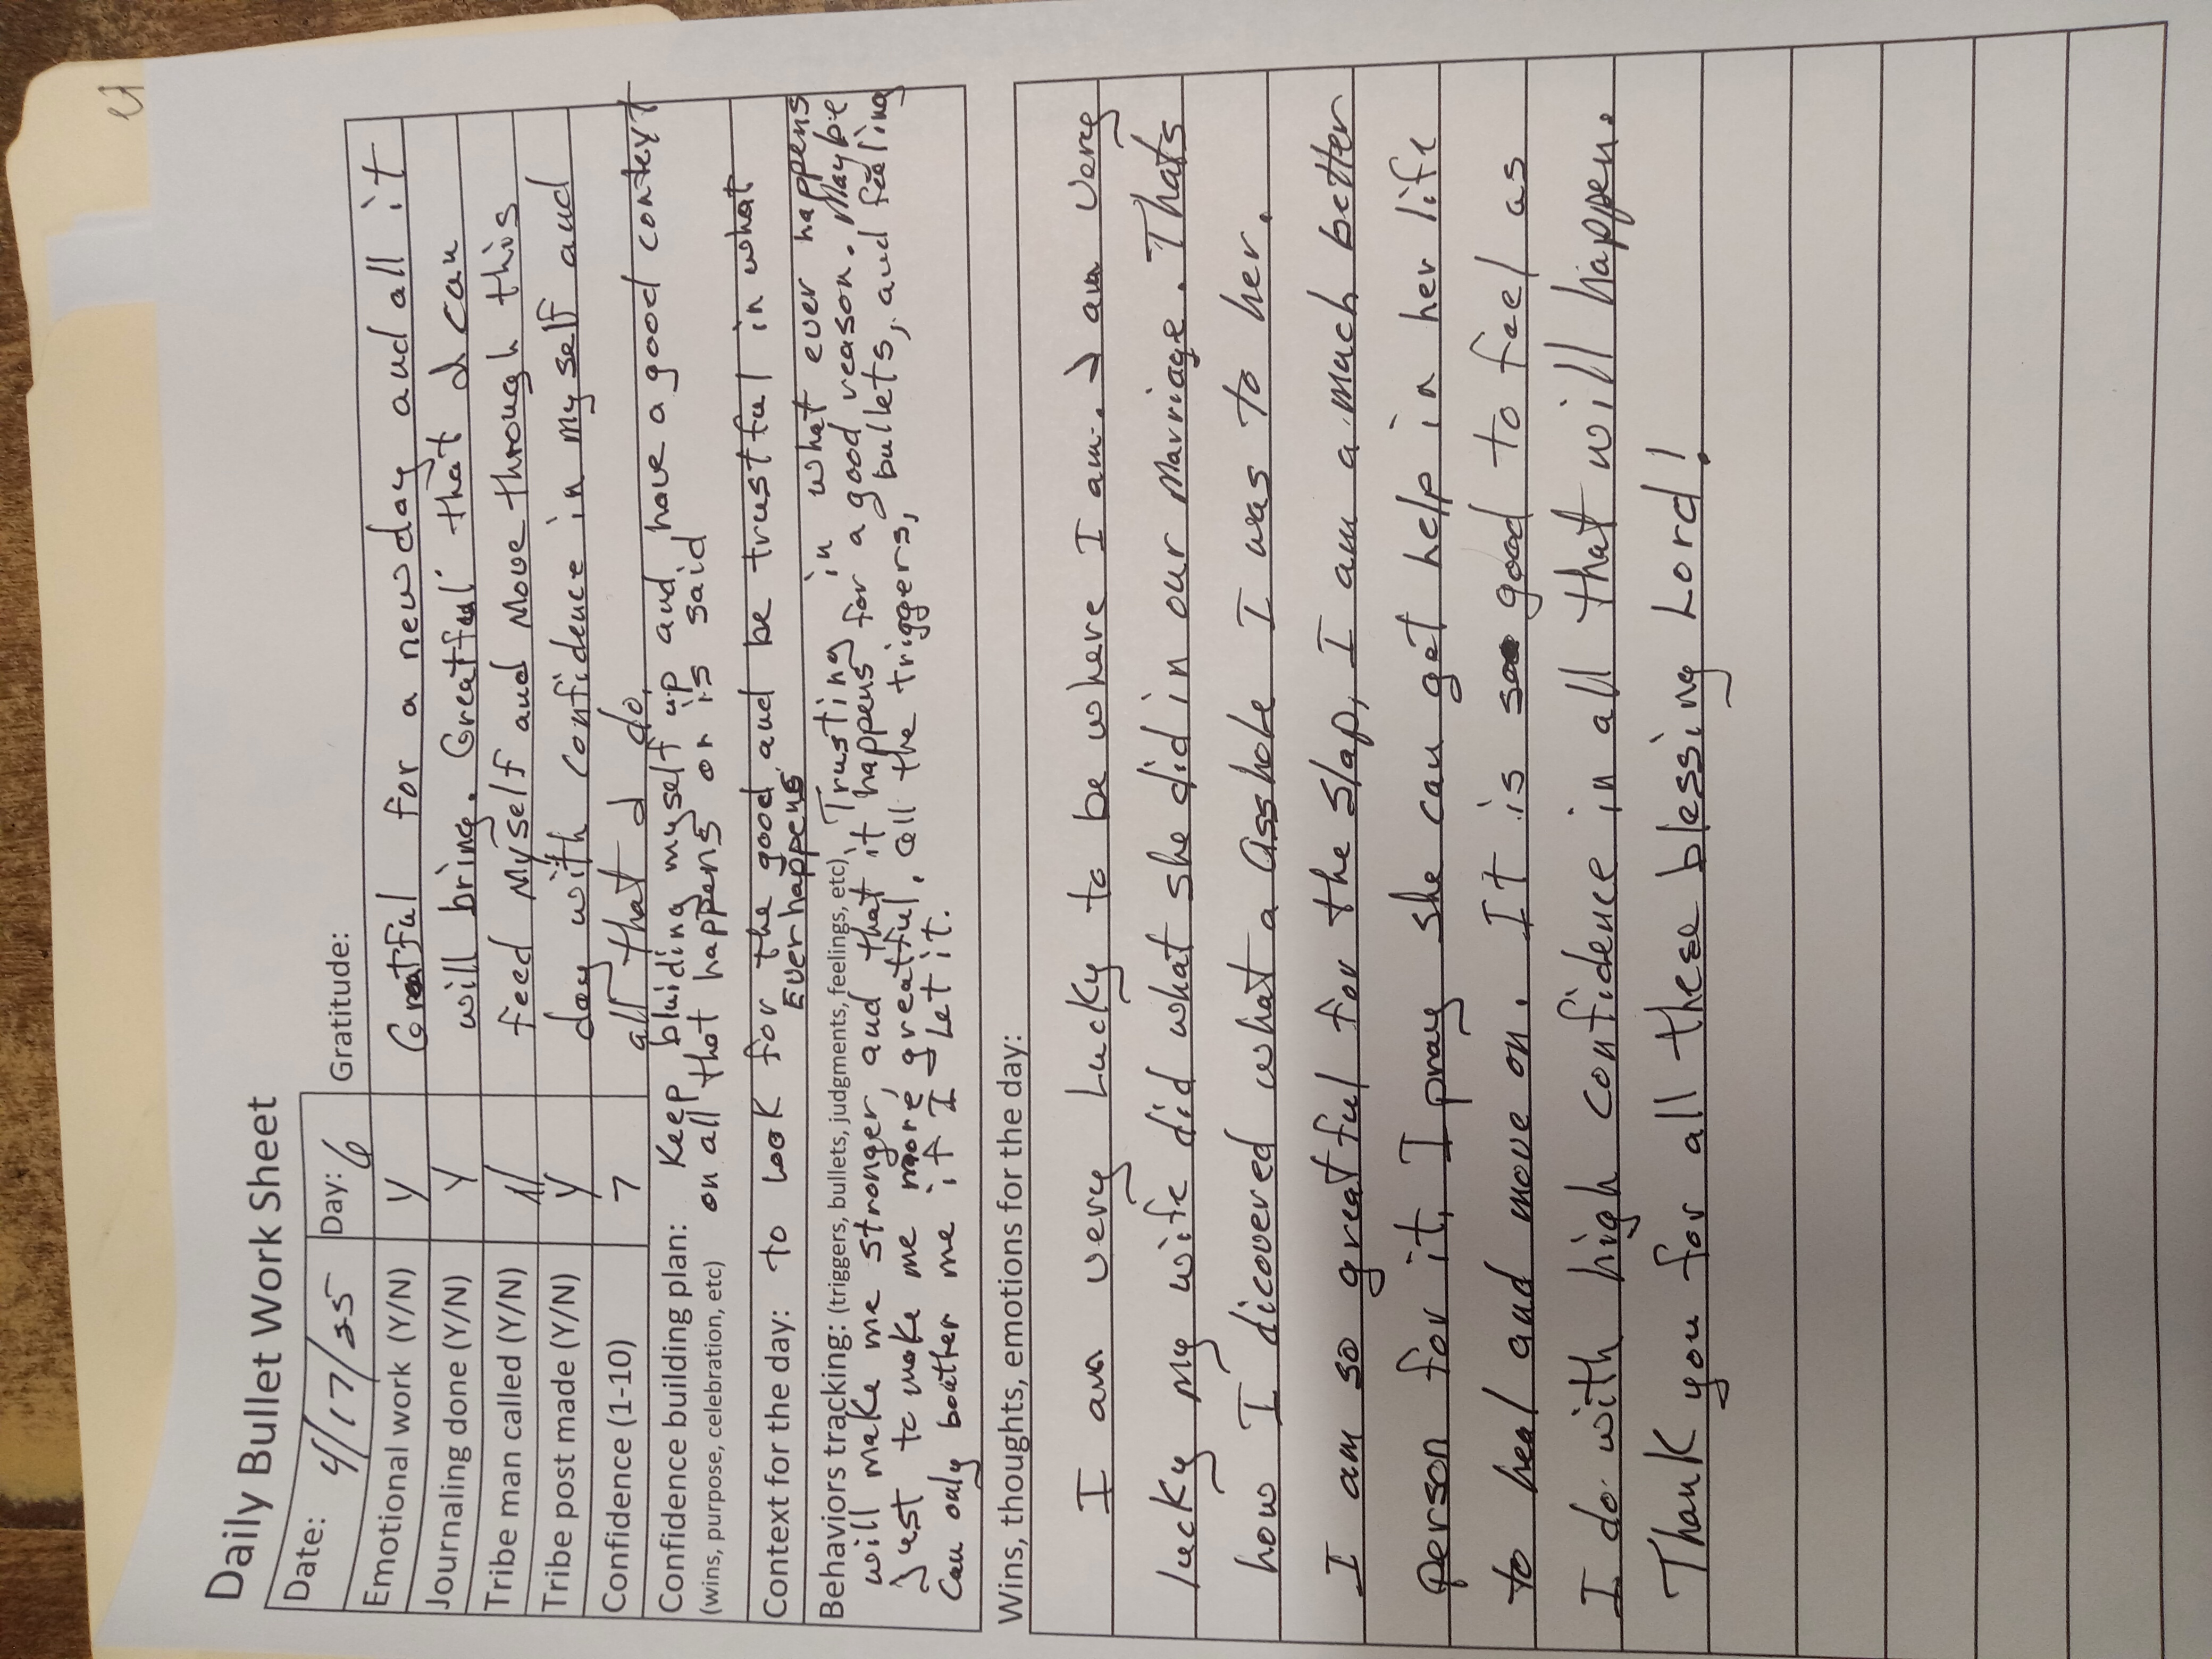 Daily Bullet Work Sheet
Date: 4/17/25 Day: 6 Gratitude:
Emotional work (Y/N) Y Greatful for a new day and all it
Journaling done (Y/N) Y will bring. Greatful that I can
Tribe man called (Y/N) N feed Myself and Move through this
Tribe post made (Y/N) Y day with confidence in my self and
Confidence (1-10) 7 all that I do.
Confidence building plan: Keep bluiding myself up and have a good contexrt
(wins, purpose, celebration, etc) on all that happens or is said
Context for the day: to Look for the good and be trustful in what
Ever happens
Behaviors tracking: (triggers, bullets, judgments, feelings, etc) Trusting in what ever happens
will make me stronger, and that it happens for a good reason. Maybe
Just to make me more greatful. all the triggers, bullets, and feeling
Can only boather me if I Let it.
Wins, thoughts, emotions for the day:
I am very Lucky to be where I am. I am very
lucky my wife did what she did in our Marriage. Thats
how I dicovered what a Asshole I was to her.
I am so greatful for the slap, I am a much better
Person for it. I pray she can get help in her life
to heal and move on. It is so good to feel as
I do with high confidence in all that will happen.
Thank you for all these blessing Lord!